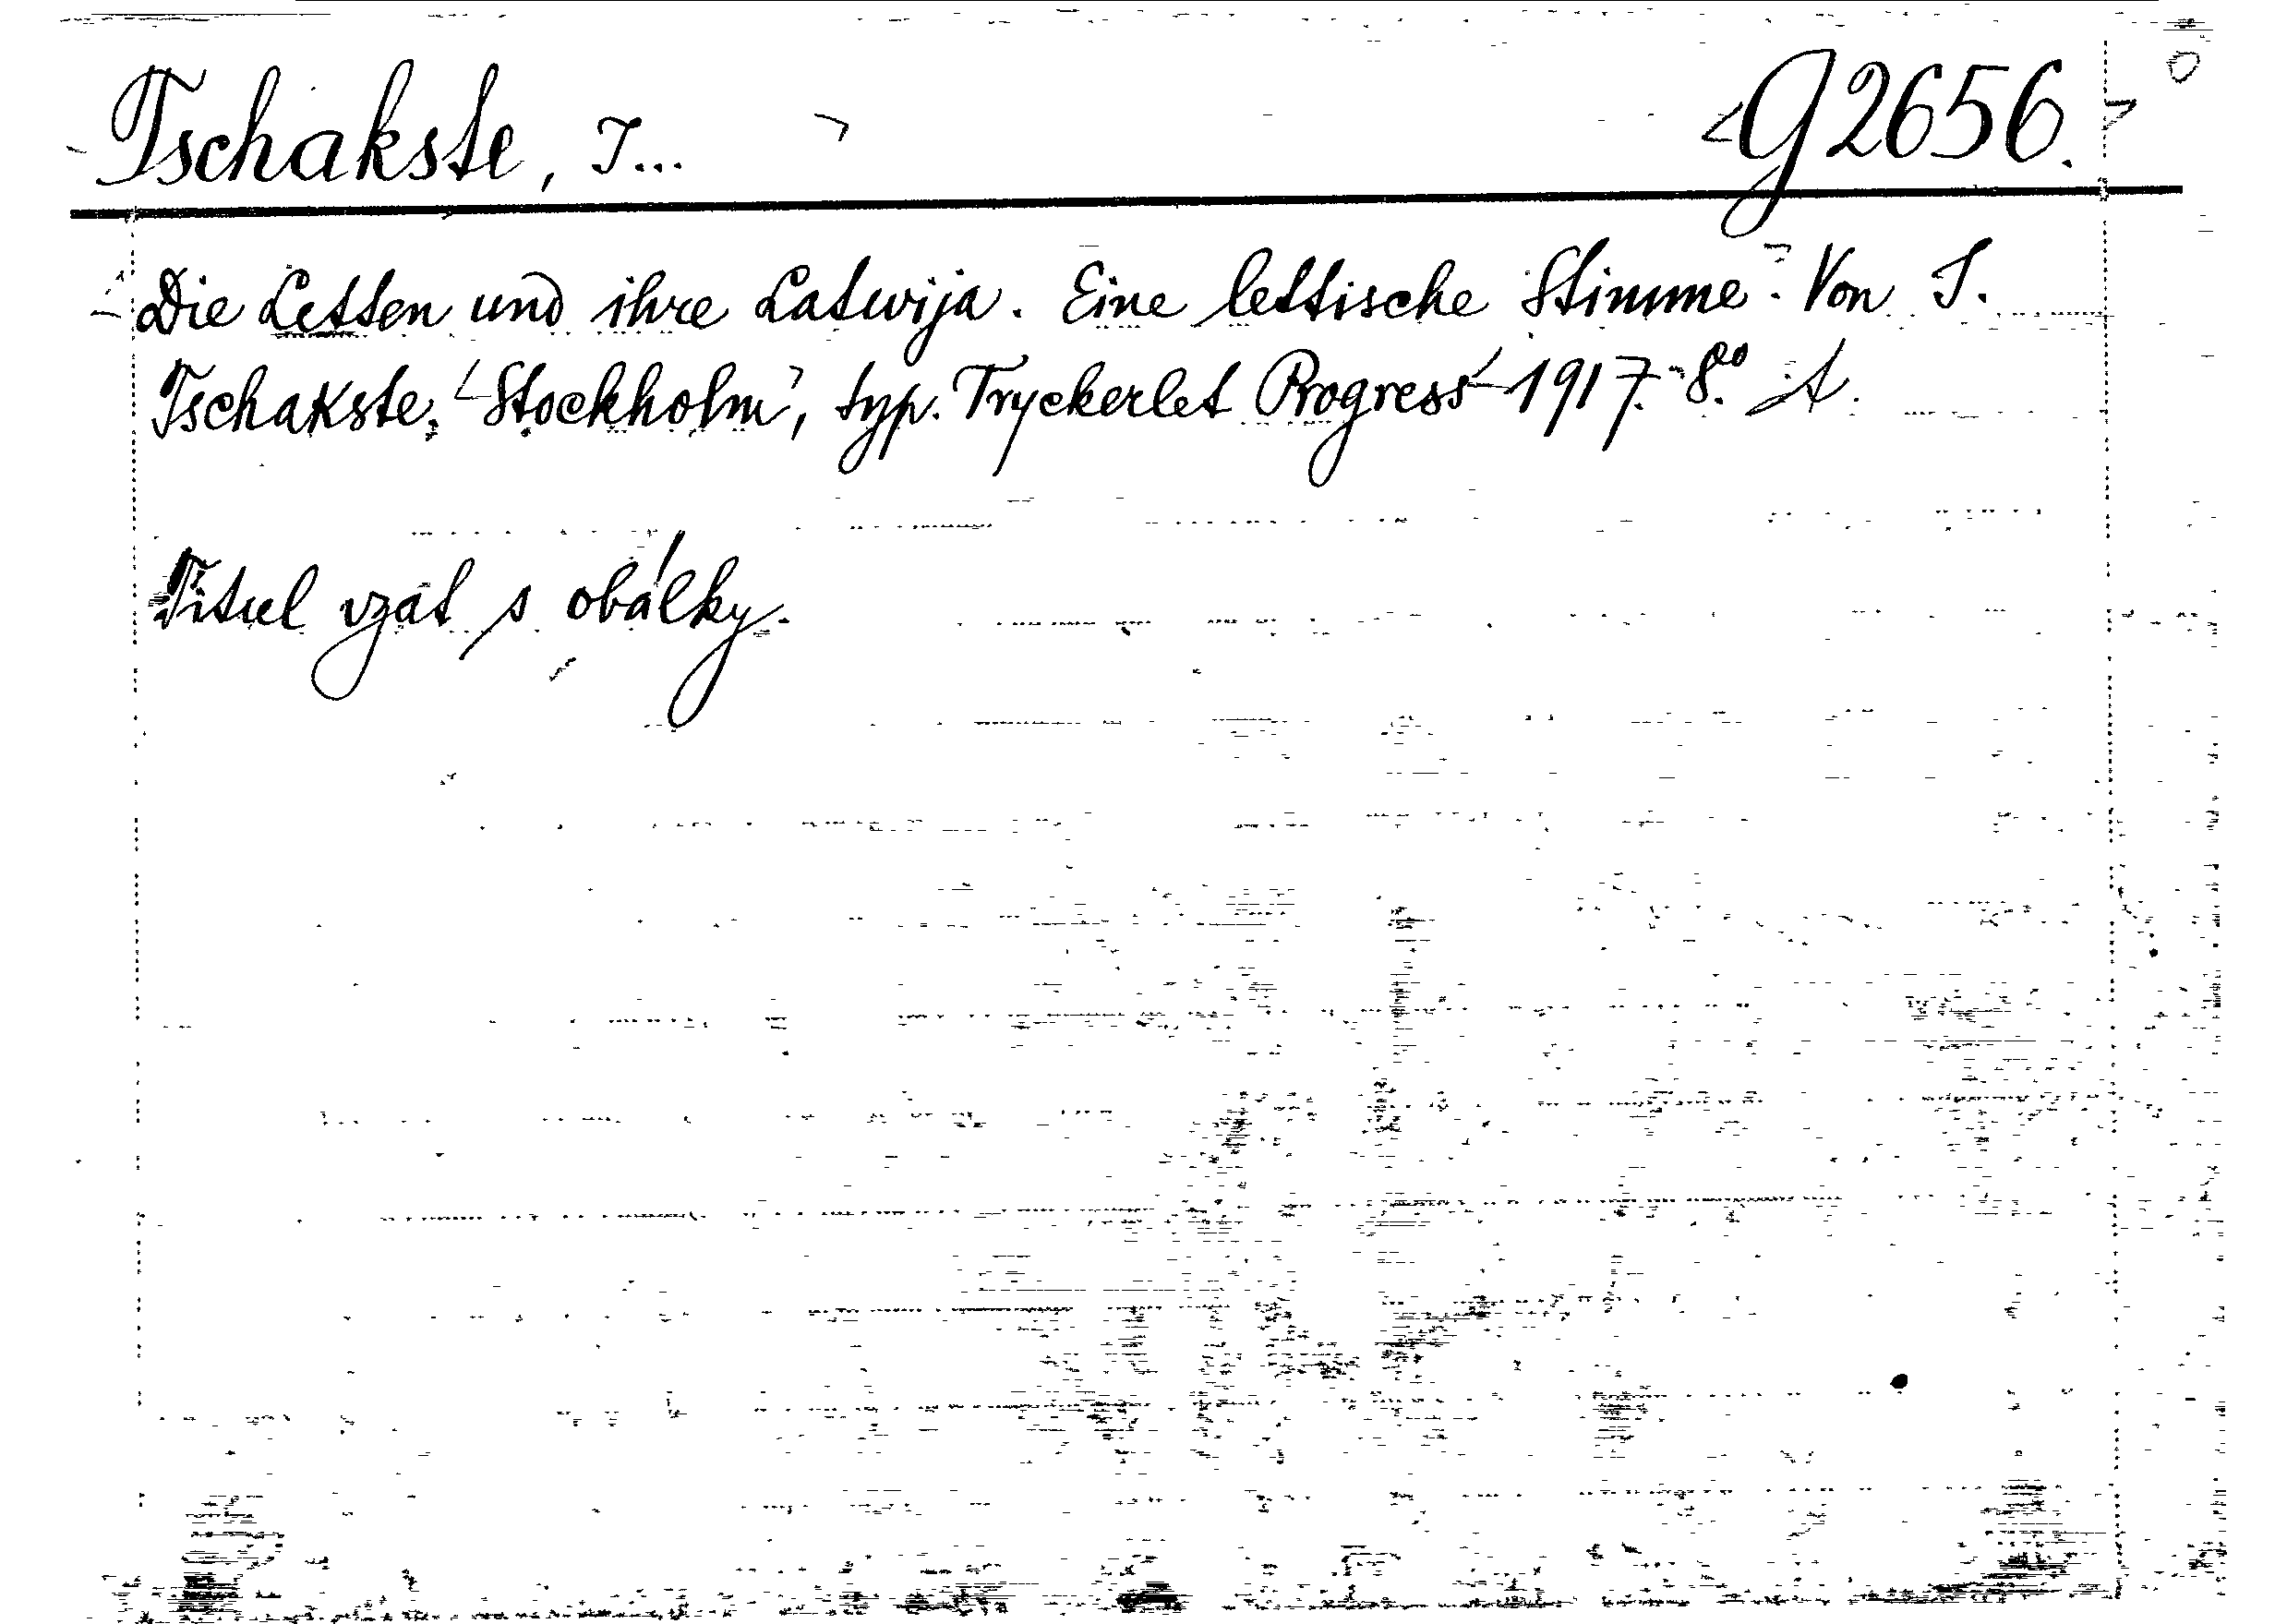 Tschakste, J... G2656.
Die Letten und ihre Latwija. Eine lettische Stimme. Von J.
Tschakste. Stockholm, typ. Tryckerlet Progress 1917. 8.º
Titul vzat s obálky.